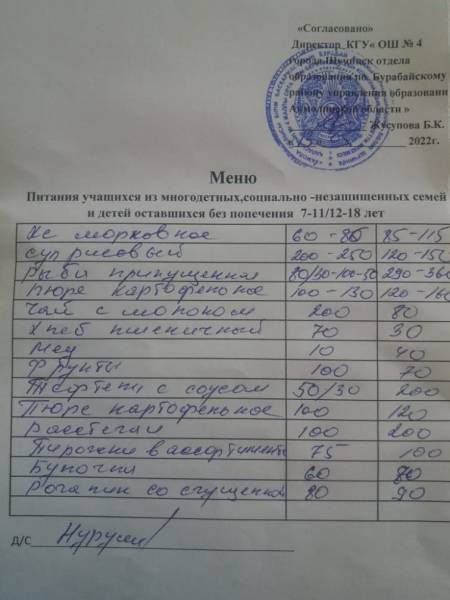 «Согласовано»
Директор КГУ« ОШ № 4
города Щучинск отдела
образования по Бурабайскому
району управления образовани
Акмолинской области »
Жусупова Б.К.
2022г.
Меню
Питания учащихся из многодетных,социально -незащишенных семей
и детей оставшихся без попечения 7-11/12-18 лет
морковное 60-80 85-115
суп рисовый 200-250 120-150
рыба припущенная 80/30-100-50 290-360
пюре картофельное 100-130 120-160
чай с молоком 200 80
Хлеб пшеничный 70 30
мед 10 40
Фрукты 100 70
Тефтели с соусом 50/30 200
Пюре картофельное 100 120
Расстегаи 100 200
Пирожки в ассортименте 75 100
Булочки 60 80
Рогалик со сгущенкой 80 90
Д/С